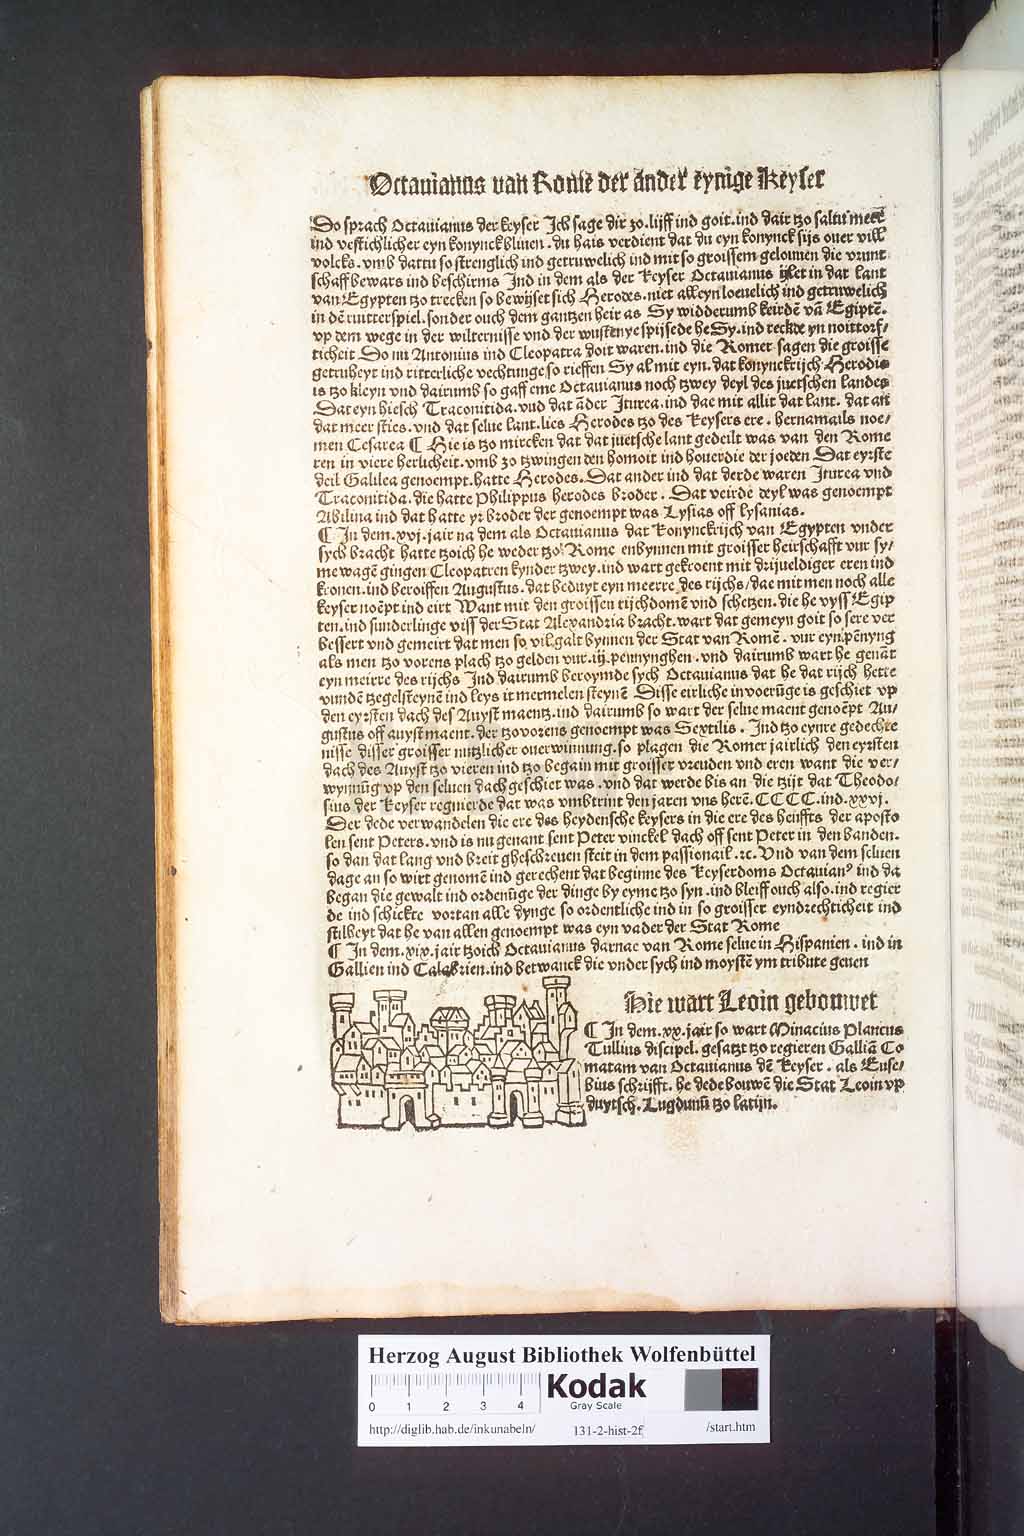 Octauianus van Rome der ander eynige Keyser
Do sprach Octauianus der keyser Ich sage dir zo. lijff ind goit. ind dair tzo saltu meer
ind vestichlicher eyn konynck bliuen. du hais verdient dat du eyn konynck sijs ouer vill
volcks. vmb dattu so strenglich ind getruwelich ind mit so groissem gelouuen die vrunt
schaff bewars ind beschirms Ind in dem als der keyser Octauianus ylet in dat lant
van Egypten tzo trecken so bewijset sich Herodes. niet alleyn loeuelich ind getruwelich
in dē ruitterspiel. sonder ouch dem gantzen heir as Sy widderumb keirdē vā Egiptē.
vp dem wege in der wilternisse vnd der wustenye spijsede he Sy. ind reckde yn noittorf/
ticheit Do nu Antonius ind Cleopatra doit waren. ind die Romer sagen die groisse
getruheyt ind ritterliche vechtunge so rieffen Sy al mit eyn. dat konynckrijch Herodis
is tzo kleyn vnd dairumb so gaff eme Octauianus noch tzwey deyl des juetschen landes
Dat eyn hiesch Traconitida. vnd dat āder Iturea. ind dae mit allit dat lant. dat an
dat meer sties. vnd dat selue lant. lies Herodes tzo des keysers ere. hernamails noe/
men Cesarea ¶ Hie is tzo mircken dat dat juetsche lant gedeilt was van den Rome
ren in viere herlicheit. vmb zo tzwingen den homoit ind houerdie der joeden Dat eyrste
deil Galilea genoempt. hatte Herodes. Dat ander ind dat derde waren Iturea vnd
Traconitida. die hatte Philippus herodes broder. Dat veirde deyl was genoempt
Abilina ind dat hatte yr broder der genoempt was Lysias off lysanias.
¶ In dem. xvj. jair na dem als Octauianus dat konynckrijch van Egypten vnder
sych bracht hatte tzoich he weder tzo Rome enbynnen mit groisser heirschafft vur sy/
me wagē gingen Cleopatren kynder tzwey. ind wart gekroent mit drijueldiger eren ind
kronen. ind beroiffen Augustus. dat beduyt eyn meerre des rijchs/ dae mit men noch alle
keyser noēpt ind eirt Want mit den groissen rijchdomē vnd schetzen. die he vyss Egip
ten. ind sunderlinge viss der Stat Alexandria bracht. wart dat gemeyn goit so sere ver
bessert vnd gemeirt dat men so vil galt bynnen der Stat van Romē. vur eyn pēnyng
als men tzo vorens plach tzo gelden vur. iij. pennynghen. vnd dairumb wart he genāt
eyn meirre des rijchs Ind dairumb beroymde sych Octauianus dat he dat rijch hette
vundē tzegelsteynē ind leys it mermelen steynē Disse eirliche invoerūge is geschiet vp
den eyrsten dach des Auyst maentz. ind dairumb so wart der selue maent genoēpt Au/
gustus off auyst maent. der tzovorens genoempt was Sextilis. Ind tzo eynre gedechte
nisse disser groisser nutzlicher ouerwinnung. so plagen die Romer jairlich den eyrsten
dach des Auyst tzo vieren ind tzo begain mit groisser vreuden vnd eren want die ver/
wynnūg vp den seluen dach geschiet was. vnd dat werde bis an die tzijt dat Theodo/
sius der keyser regnierde dat was vmbtrint den jaren vns herē. CCCC. ind. xxvj.
Der dede verwandelen die ere des heydensche keysers in die ere des heuffts der aposto
len sent Peters. vnd is nu genant sent Peter vinckel dach off sent Peter in den banden.
so dan dat lang vnd breit gheschreuen steit in dem passionail. ꝛc. Vnd van dem seluen
dage an so wirt genomē ind gerechent dat beginne des keyserdoms Octauianꝰ ind da
began die gewalt ind ordenūge der dinge by eyme tzo syn. ind bleiff ouch also. ind regier
de ind schickte vortan alle dynge so ordentliche ind in so groisser eyndrechticheit ind
stilheyt dat he van allen genoempt was eyn vader der Stat Rome
¶ In dem. xix. jair tzoich Octauianus darnae van Rome selue in Hispanien. ind in
Gallien ind Calabrien. ind betwanck die vnder sych ind moystē ym tribute geuen
Hie wart Leoin gebouwet
¶ In dem. xx. jair so wart Minacius Plancus
Tullius discipel. gesatzt tzo regieren Galliā Co
matam van Octauianus dē keyser. als Euse/
bius schrijfft. he dede bouwē die Stat Leoin vp
duytsch. Lugdunū tzo latijn.
Herzog August Bibliothek Wolfenbüttel
0 1 2 3 4
Kodak
Gray Scale
http://diglib.hab.de/inkunabeln/ 131-2-hist-2f /start.htm